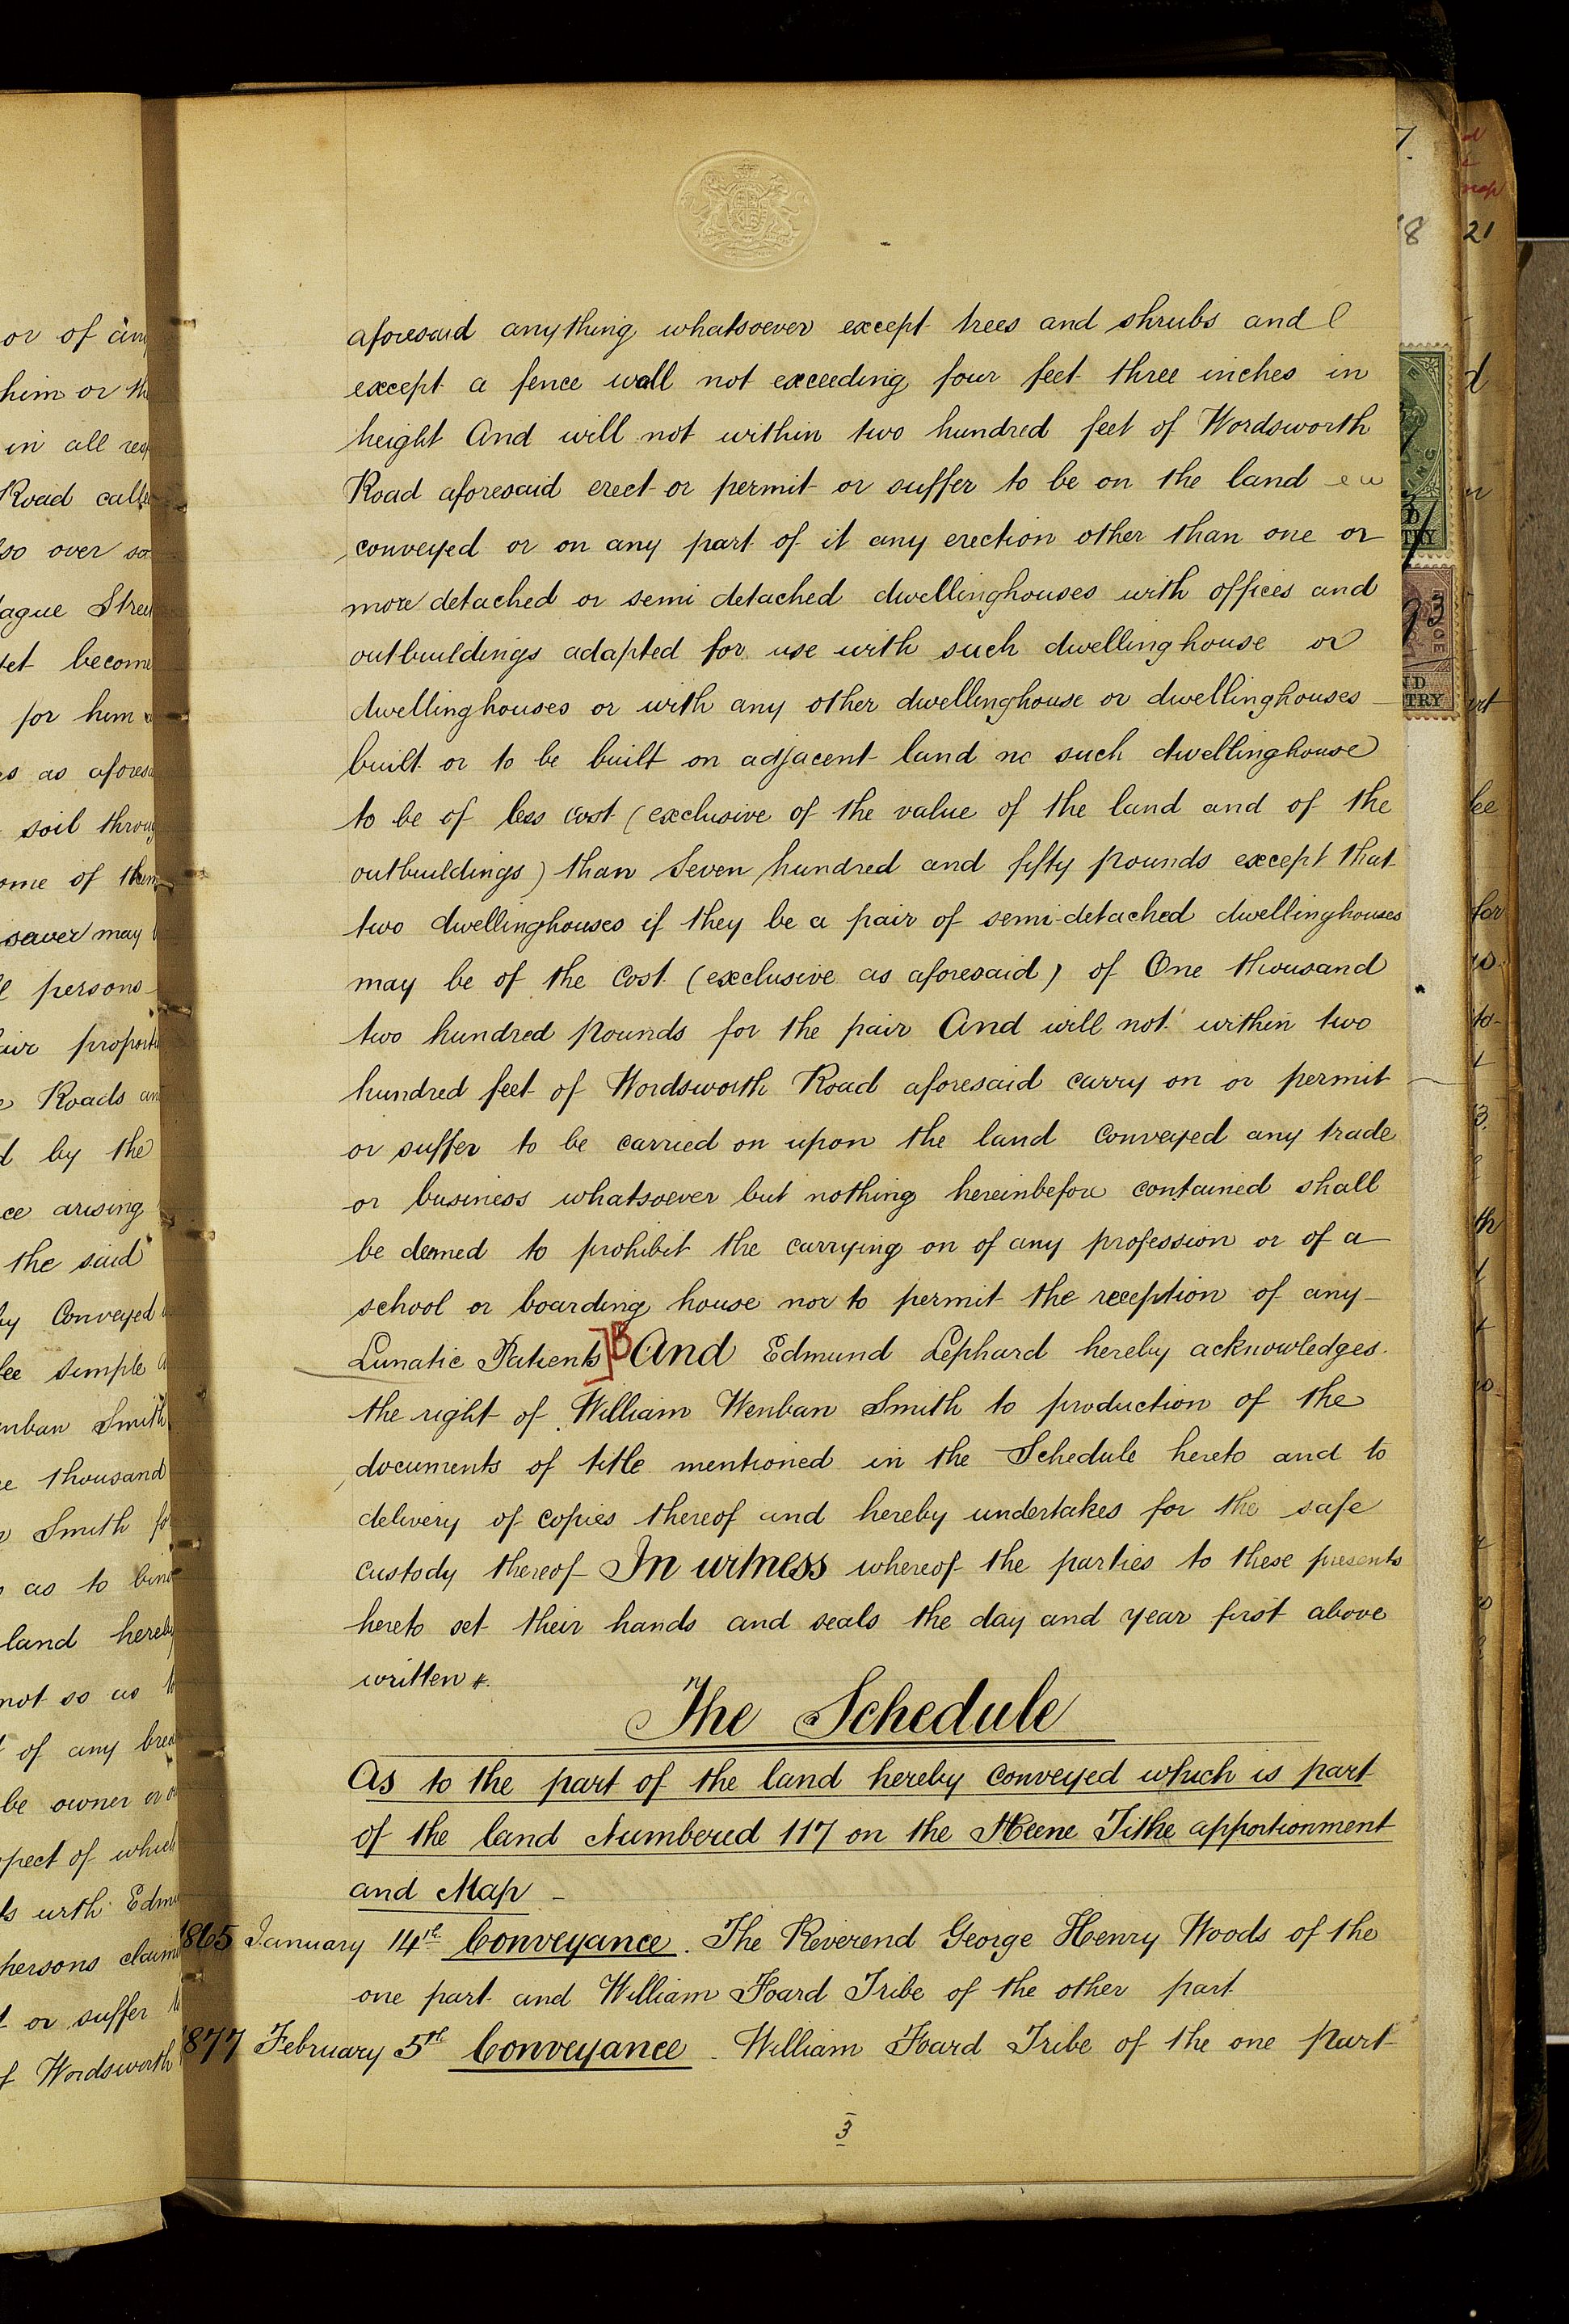 aforesaid anything whatsoever except trees and shrubs and
except a fence wall not exceeding four feet three inches in
height And will not within two hundred feet of Wordsworth
Road aforesaid erect or permit or suffer to be on the land
conveyed or on any part of it any erection other than one or
more detached or semi detached dwellinghouses with offices and
outbuildings adapted for use with such dwellinghouse or
dwellinghouses or with any other dwellinghouse or dwellinghouses
built or to be built on adjacent land no such dwellinghouse
to be of less cost (exclusive of the value of the land and of the
outbuildings) than Seven hundred and fifty pounds except that
two dwellinghouses if they be a pair of semi-detached dwellinghouses
may be of the cost (exclusive as aforesaid) of One thousand
two hundred pounds for the pair And will not within two
hundred feet of Wordsworth Road aforesaid carry on or permit
or suffer to be carried on upon the land conveyed any trade
or business whatsoever but nothing hereinbefore contained shall
be deemed to prohibit the carrying on of any profession or of a
school or boarding house nor to permit the reception of any
Lunatic Patients]B And Edmund Lephard hereby acknowledges
the right of William Wenban Smith to production of the
documents of title mentioned in the Schedule hereto and to
delivery of copies thereof and hereby undertakes for the safe
custody thereof In witness whereof the parties to these presents
hereto set their hands and seals the day and year first above
written
The Schedule
As to the part of the land hereby conveyed which is part
of the land Numbered 117 on the Heene Tithe apportionment
and Map
1865 January 14th Conveyance. The Reverend George Henry Woods of the
one part and William Foard Tribe of the other part
1877 February 5th Conveyance. William Foard Tribe of the one part
3
or of any
him or th
in all res
Road calle
lso over so
tague Stree
yet become
for him
es as aforesa
soil throug
ome of them
soever may
persons
air proport
Roads an
by the
ce arising
the said
by Conveyed
fee simple
enban Smith
thousand
Smith for
as to bind
land hereby
not so as
of any brea
be owner or
pect of which
with Edm
persons claim
or suffer
of Wordsworth
21